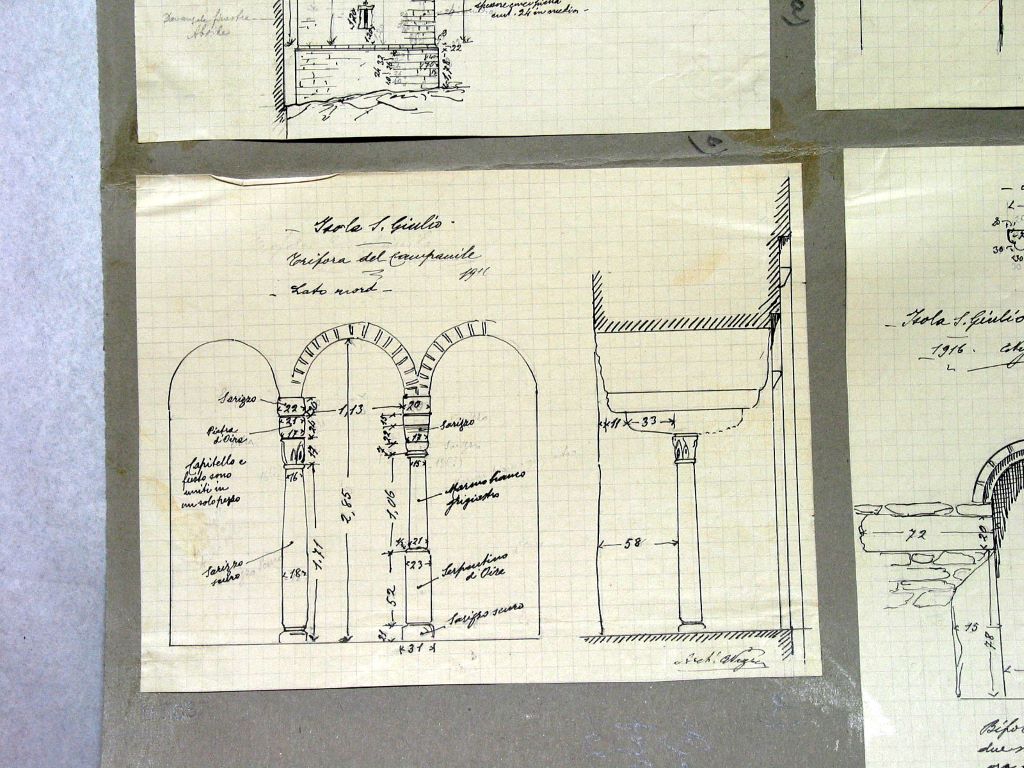 Abside
cent. 24 in media
22
a)
a)
Isola S. Giulio
Trifora del Campanile
1911
Lato nord
Sarizzo
22
1,13
20
Pietra
d'Oira
21
18
Sarizzo
18
Capitello e
fusto sono
uniti in
un solo pezzo
16
15
Marmo bianco
grigiastro
2,85
1,06
1,71
Sarizzo
scuro
18
14
21
23
Serpentino
d'Oira
52
Sarizzo scuro
31
11
33
58
Arch.
Isola S. Giulio
1916.
30
72
20
15
78
Bifo
due